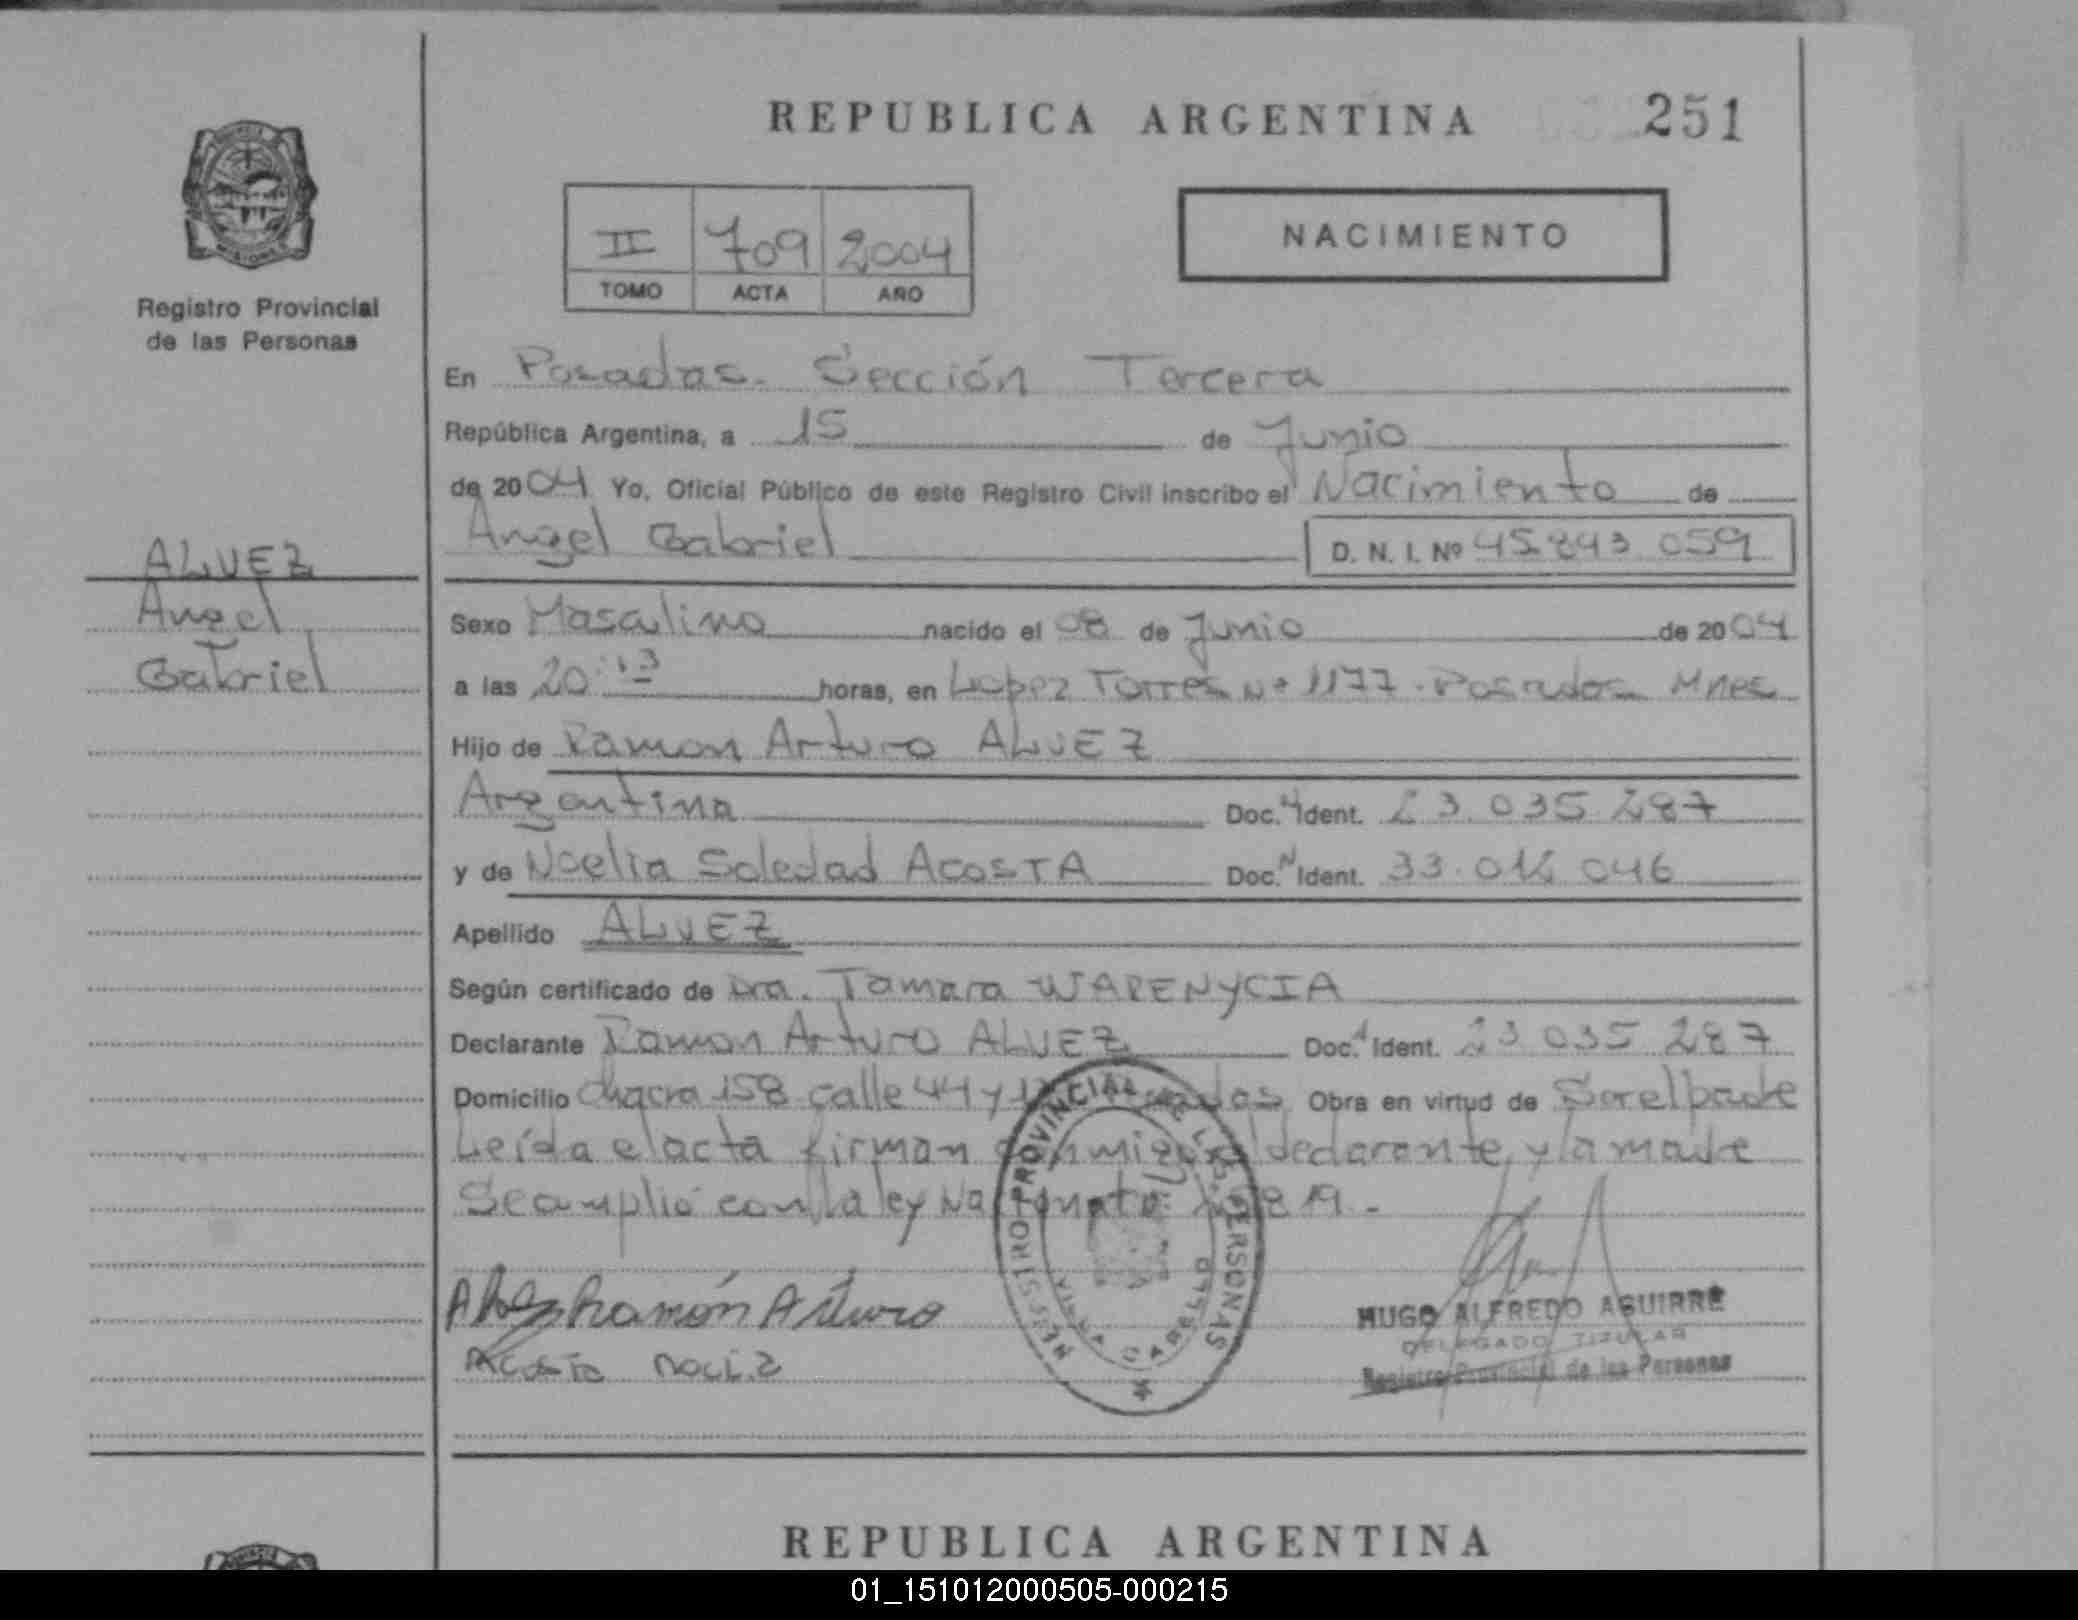 REPUBLICA ARGENTINA
251
II 709 2004
TOMO ACTA AÑO
NACIMIENTO
Registro Provincial
de las Personas
En Posadas. Sección Tercera
República Argentina, a 15 de Junio
de 2004 Yo, Oficial Público de este Registro Civil inscribo el Nacimiento de
Angel Gabriel
D. N. I. Nº 45.843.059
ALVEZ
Angel
Gabriel
Sexo Masculino nacido el 08 de Junio de 2004
a las 20:13 horas, en Lopez Torres Nº 1177. Posadas Mnes
Hijo de Ramon Arturo ALVEZ
Argentina Doc. Ident. 23.035.287
y de Noelia Soledad ACOSTA Doc. N Ident. 33.014.046
Apellido ALVEZ
Según certificado de Dra. Tamara WARENYCIA
Declarante Ramon Arturo ALVEZ Doc. Ident. 23.035.287
Domicilio chacra 158 calle 44 y Obra en virtud de Ser el padre
Leída el acta firman conmigo el declarante, y la madre
Se amplió con la ley Nac
Alvez Ramón Arturo
Acosta
REGISTRO PROVINCIAL DE LAS PERSONAS
VILLA CABELLO
HUGO ALFREDO AGUIRRE
DELEGADO TITULAR
Registro Provincial de las Personas
REPUBLICA ARGENTINA
01_151012000505-000215